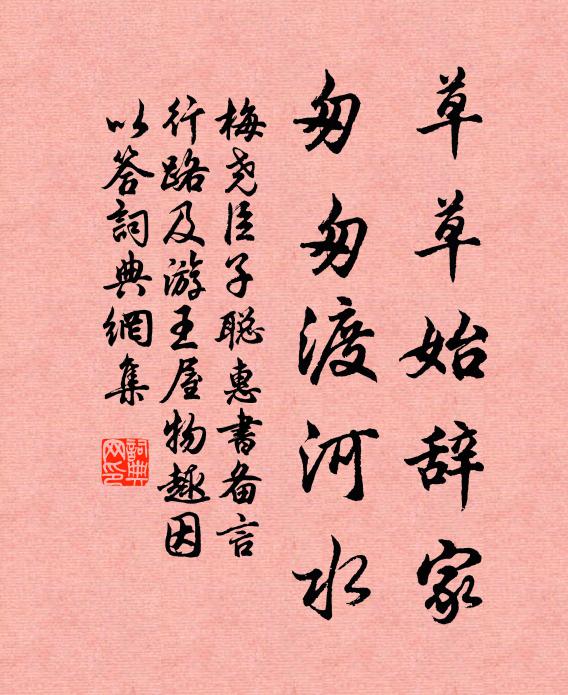 草草始辞家
匆匆渡河水
梅尧臣子聪惠书备言
行路及游王屋物趣因
以答詞典網集
詞典网印